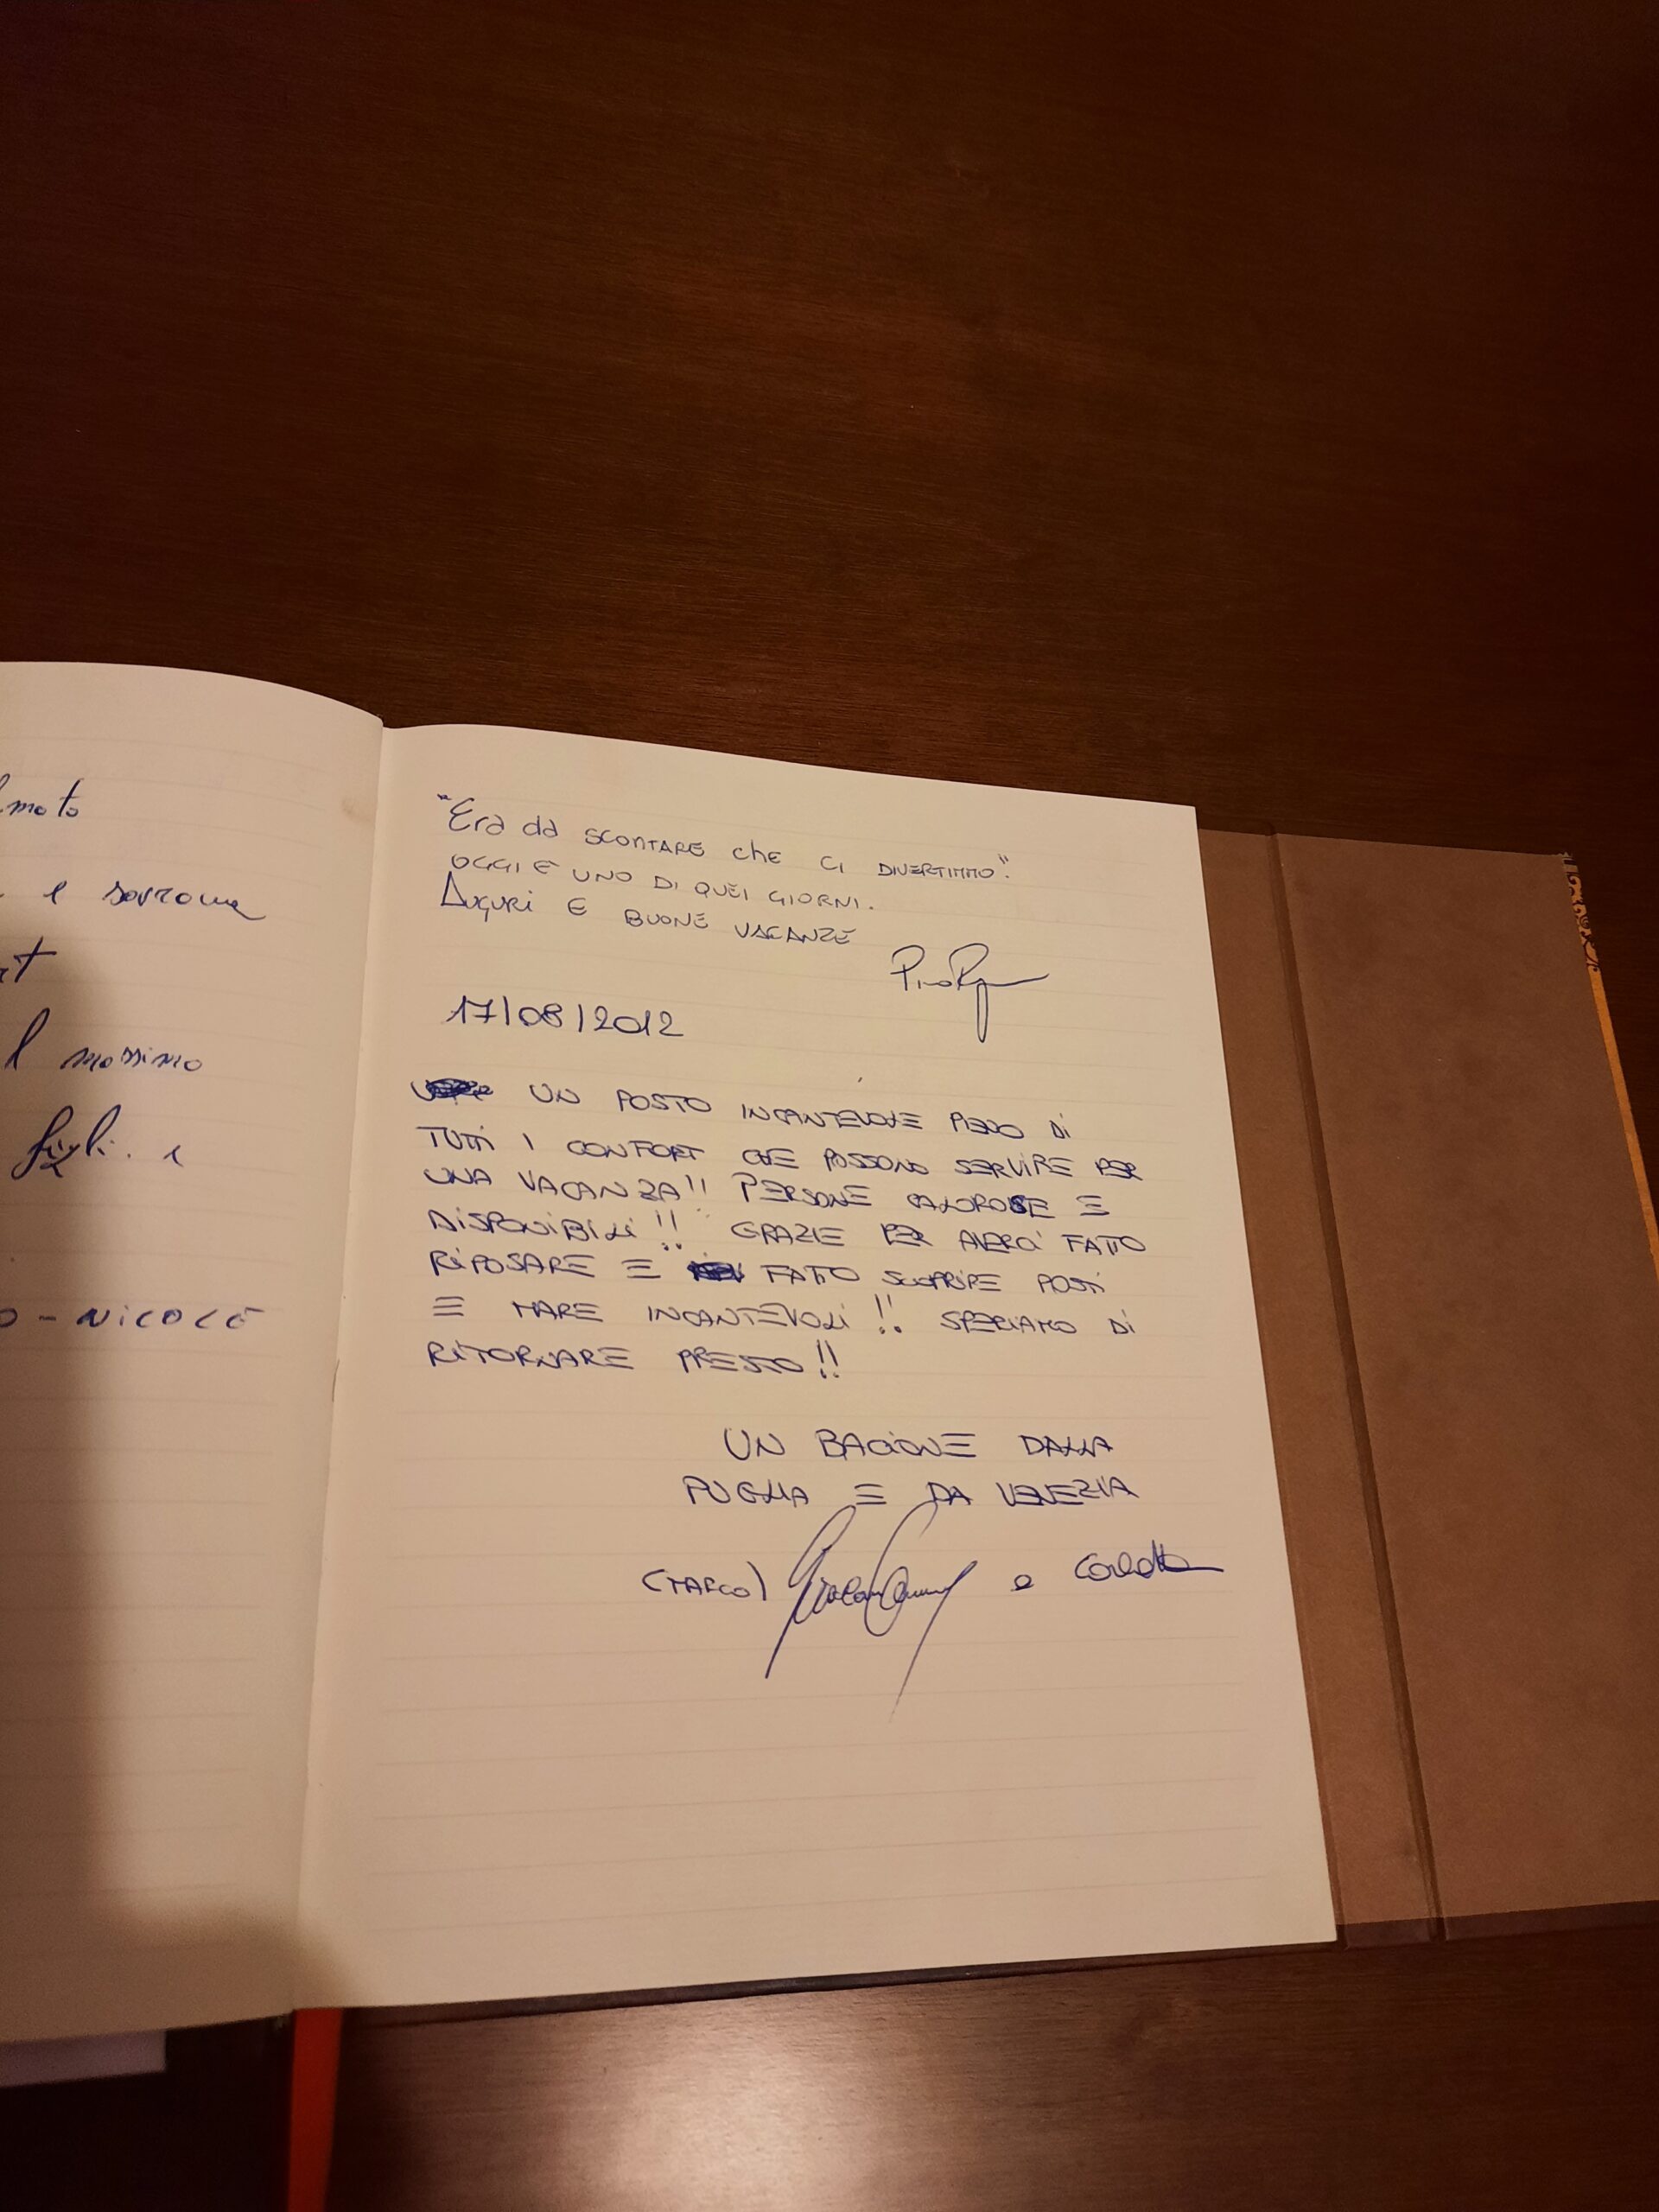 moto
e
l massimo
figli. e
- NICOLÒ
"Era da SCONTARE che CI DIVERTIMMO".
OGGI E UNO DI QUEI GIORNI.
AUGURI E BUONE VACANZE
17/08/2012
UN POSTO INCANTEVOLE PIENO DI
TUTTI I CONFORT CHE POSSONO SERVIRE PER
UNA VACANZA!! PERSONE CALOROSE E
DISPONIBILI!! GRAZIE PER AVERCI FATTO
RIPOSARE E FATTO SCOPRIRE POSTI
E MARE INCANTEVOLI!! SPERIAMO DI
RITORNARE PRESTO!!
UN BACIONE DALLA
PUGLIA E DA VENEZIA
(MARCO) e Carlotta